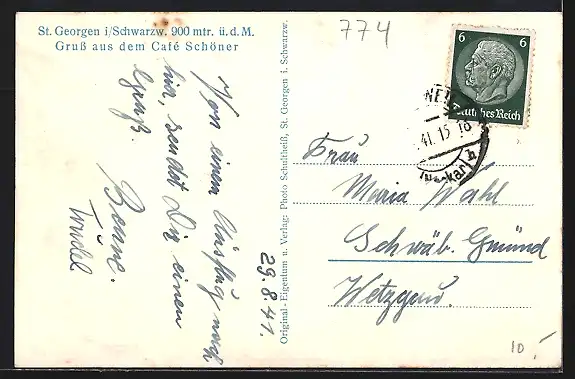 St. Georgen i/Schwarzw. 900 mtr. ü.d.M.
Gruß aus dem Café Schöner
Von einen Ausflug nach
hier, sendet Dir einen
Gruß.
Trudel
29.8.41.
Original - Eigentum u. Verlag: Photo Schultheiß, St. Georgen i. Schwarzw.
774
6 6
Deutsches Reich
41. 15
Frau
Maria Wahl
Schwäb. Gmünd
Wetzgau.
10,-